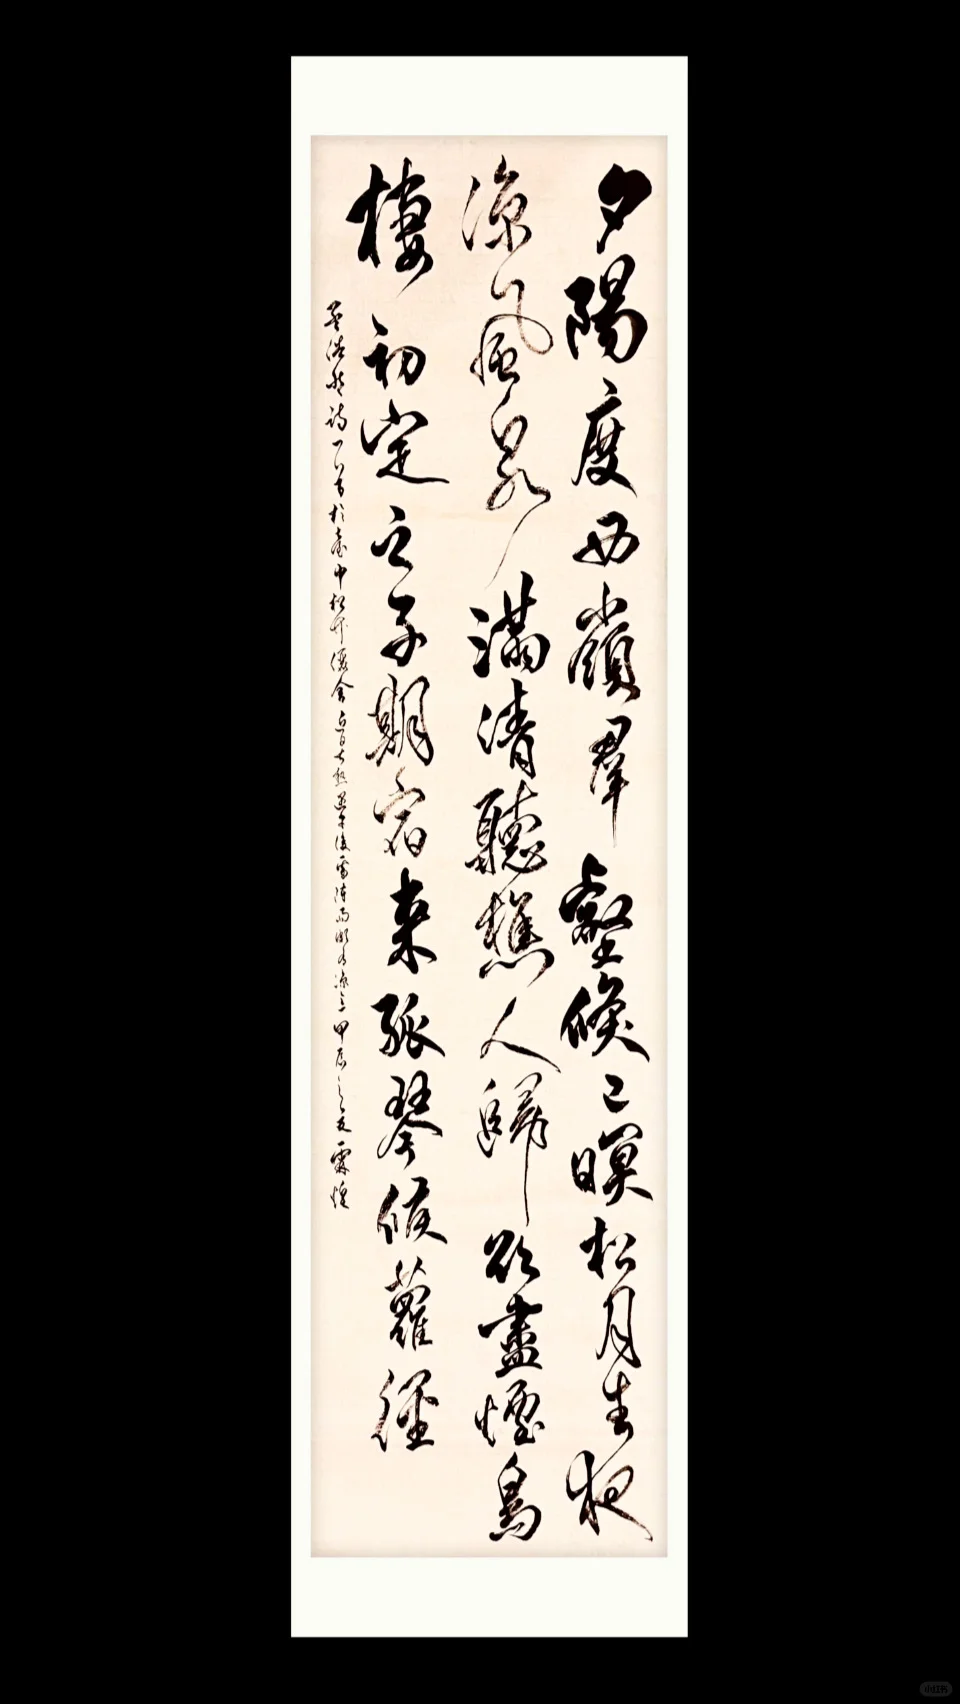 夕陽度西嶺羣壑倏已暝松月生夜
涼風泉滿清聽樵人歸欲盡煙鳥
棲初定之子期宿來孤琴候蘿徑
孟浩然詩一首於臺中
小红书